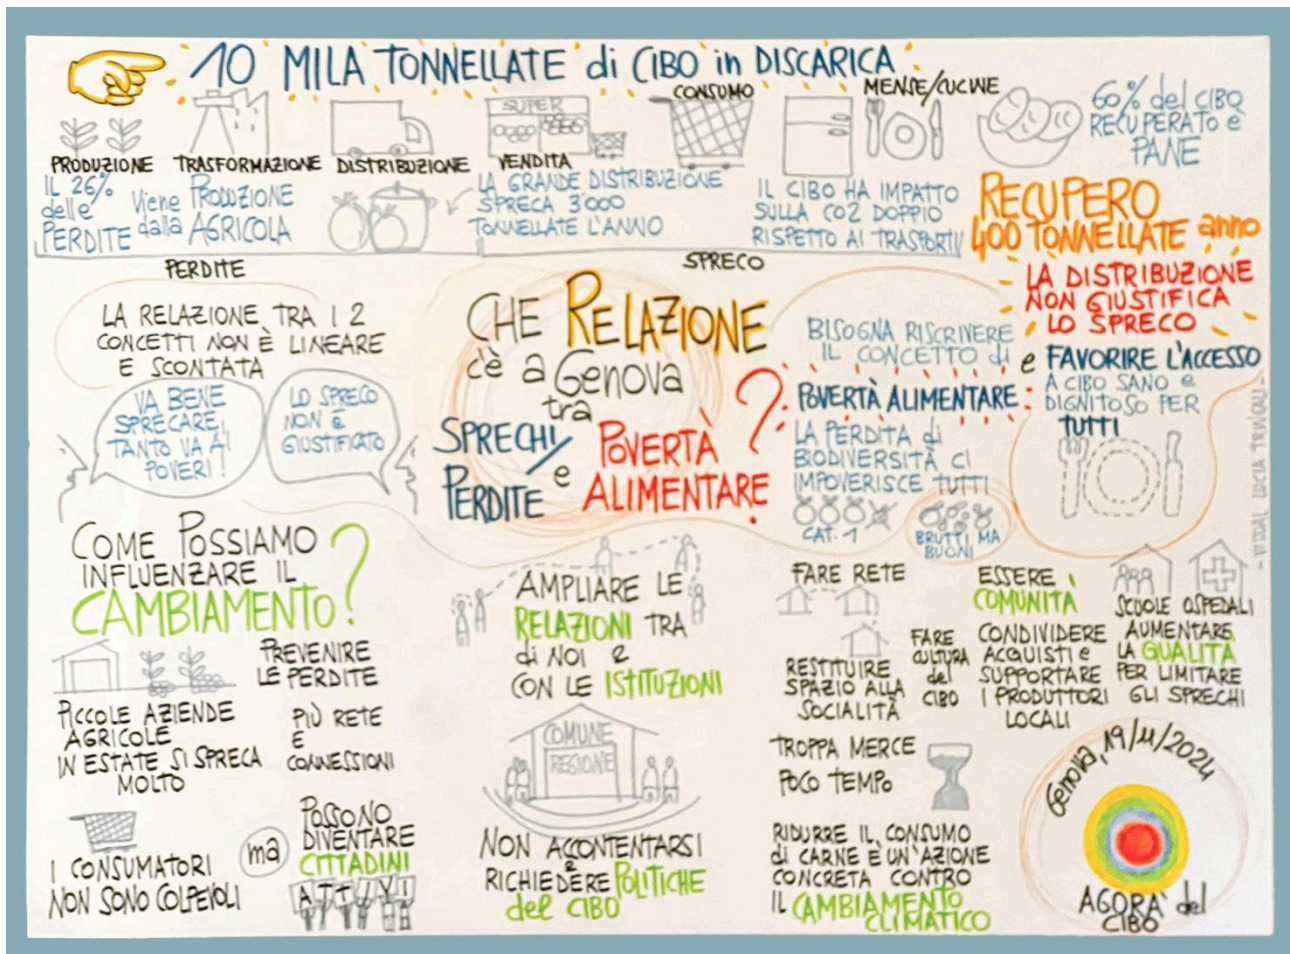 10 MILA TONNELLATE di CIBO in DISCARICA
PRODUZIONE
TRASFORMAZIONE
DISTRIBUZIONE
SUPER
VENDITA
CONSUMO
MENSE/CUCINE
60% del CIBO
RECUPERATO È
PANE
IL 26%
delle
PERDITE
Viene PRODUZIONE
dalla AGRICOLA
LA GRANDE DISTRIBUZIONE
SPRECA 3'000
TONNELLATE L'ANNO
IL CIBO HA IMPATTO
SULLA CO2 DOPPIO
RISPETTO AI TRASPORTI
RECUPERO
400 TONNELLATE anno
PERDITE
SPRECO
LA DISTRIBUZIONE
NON GIUSTIFICA
LO SPRECO
LA RELAZIONE TRA I 2
CONCETTI NON È LINEARE
E SCONTATA
VA BENE
SPRECARE,
TANTO VA AI
POVERI!
LO SPRECO
NON È
GIUSTIFICATO
CHE RELAZIONE
c'è a Genova
tra
SPRECHI/
PERDITE
e
POVERTÀ
ALIMENTARE
?
BISOGNA RISCRIVERE
IL CONCETTO di
POVERTÀ ALIMENTARE:
LA PERDITA di
BIODIVERSITÀ CI
IMPOVERISCE TUTTI
CAT. 1
BRUTTI MA
BUONI
e FAVORIRE L'ACCESSO
A CIBO SANO e
DIGNITOSO PER
TUTTI
COME POSSIAMO
INFLUENZARE IL
CAMBIAMENTO?
PREVENIRE
LE PERDITE
PICCOLE AZIENDE
AGRICOLE
IN ESTATE SI SPRECA
MOLTO
PIÙ RETE
E
CONNESSIONI
I CONSUMATORI
NON SONO COLPEVOLI
ma
POSSONO
DIVENTARE
CITTADINI
ATTIVI
AMPLIARE LE
RELAZIONI TRA
di NOI e
CON LE ISTITUZIONI
COMUNE
REGIONE
NON ACCONTENTARSI
e
RICHIEDERE POLITICHE
del CIBO
FARE RETE
RESTITUIRE
SPAZIO ALLA
SOCIALITÀ
FARE
CULTURA
del
CIBO
ESSERE
COMUNITÀ
CONDIVIDERE
ACQUISTI e
SUPPORTARE
I PRODUTTORI
LOCALI
SCUOLE OSPEDALI
AUMENTARE
LA QUALITÀ
PER LIMITARE
GLI SPRECHI
TROPPA MERCE
POCO TEMPO
RIDURRE IL CONSUMO
di CARNE È UN'AZIONE
CONCRETA CONTRO
IL CAMBIAMENTO
CLIMATICO
Genova, 19/11/2024
AGORA' del
CIBO